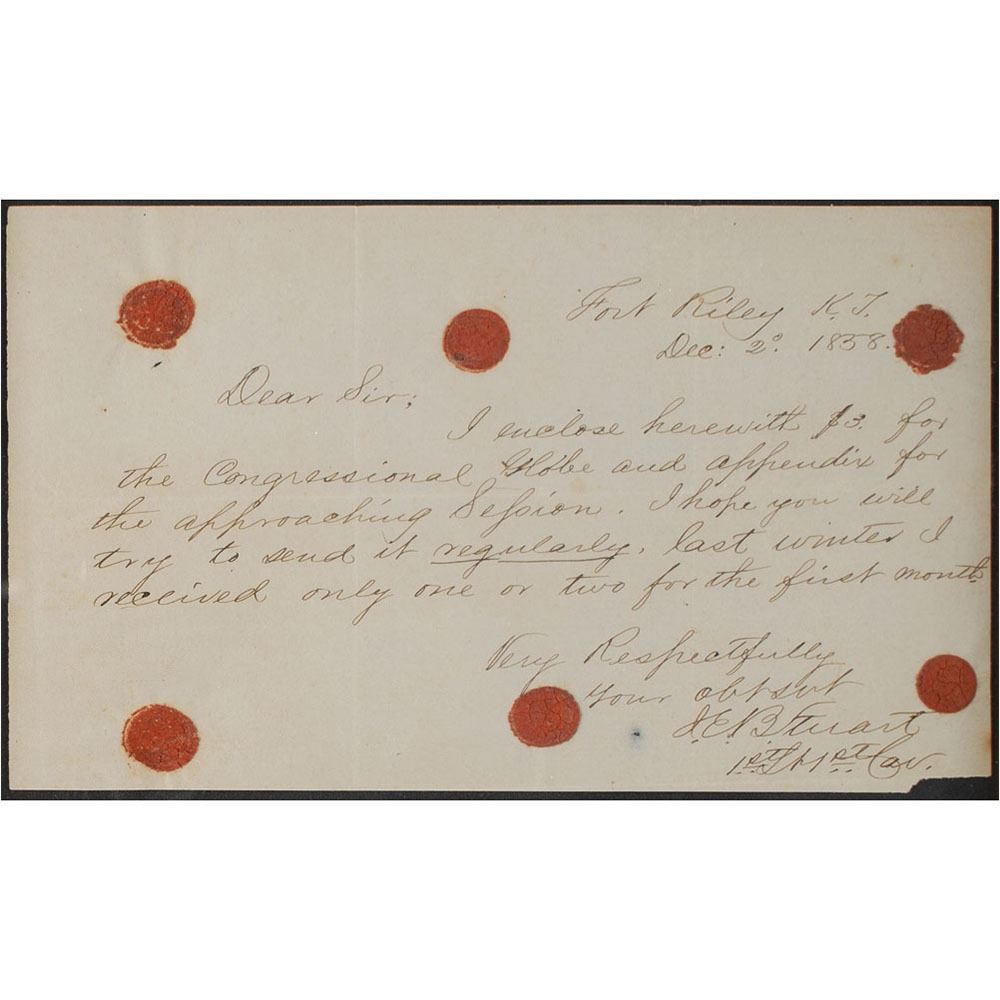 Fort Riley K.T.
Dec: 2º. 1858.
Dear Sir;
I enclose herewith $3. for
the Congressional Globe and appendix for
the approaching Session. I hope you will
try to send it regularly, last winter I
received only one or two for the first month.
Very Respectfully
Your obt svt
J.E.B. Stuart
1st Lt 1st Cav.